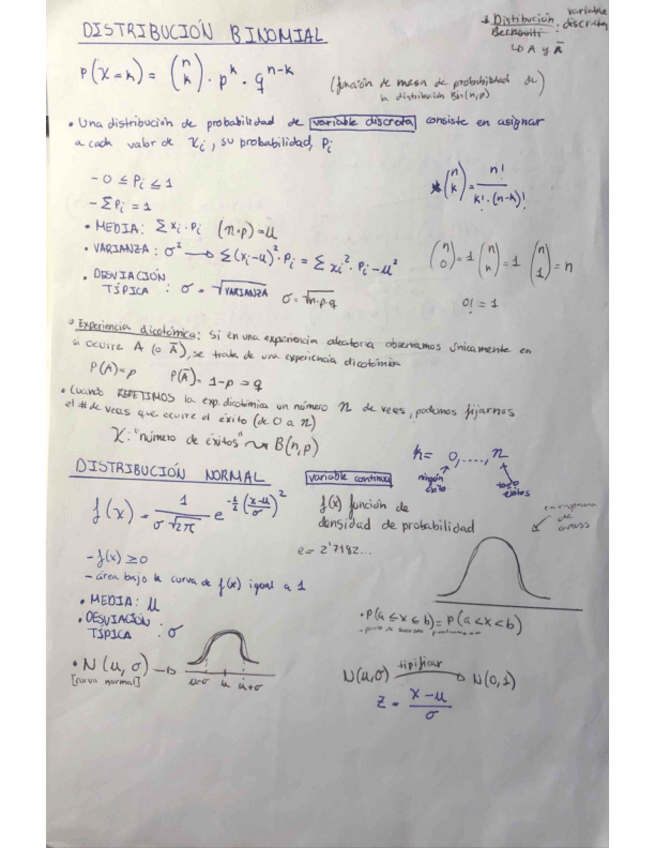 DISTRIBUCIÓN BINOMIAL
* Distribución variable discreta
Bernoulli:
↳ A y Ā
P(X=k) = (n k) · p^k · q^(n-k)
(función de masa de probabilidad de la distribución Bin(n,p))
• Una distribución de probabilidad de variable discreta consiste en asignar
a cada valor de xi, su probabilidad, Pi
- 0 ≤ Pi ≤ 1
- ΣPi = 1
* (n k) = n! / k!·(n-k)!
• MEDIA: Σxi·Pi (n·p)=μ
• VARIANZA: σ² → Σ(xi-μ)²·Pi = Σxi²·Pi-μ²
(n 0)=1 (n n)=1 (n 1)=n
• DESVIACIÓN
TÍPICA : σ = √VARIANZA σ=√n·p·q
0! = 1
• Experiencia dicotómica: Si en una experiencia aleatoria observamos únicamente en
si ocurre A (o Ā), se trata de una experiencia dicotómica
P(A)=p P(Ā)= 1-p → q
• Cuando REPETIMOS la exp. dicotómica un número n de veces, podemos fijarnos
el # de veces que ocurre el éxito (de 0 a n)
X: "número de éxitos" ⇝ B(n,p)
k= 0,...., n
ningún éxito
todo éxitos
DISTRIBUCIÓN NORMAL
variable continua
f(x) = 1/(σ√2π) e^(-½((x-μ)/σ)²)
f(x) función de
densidad de probabilidad
campana
de
Gauss
e= 2'7182...
- f(x) ≥0
- área bajo la curva de f(x) igual a 1
• MEDIA: μ
• DESVIACIÓN
TÍPICA : σ
• P(a≤x≤b)= P(a<x<b)
• N(μ, σ) →
[curva normal]
μ-σ μ μ+σ
N(μ,σ) tipificar → N(0,1)
z = (x-μ)/σ